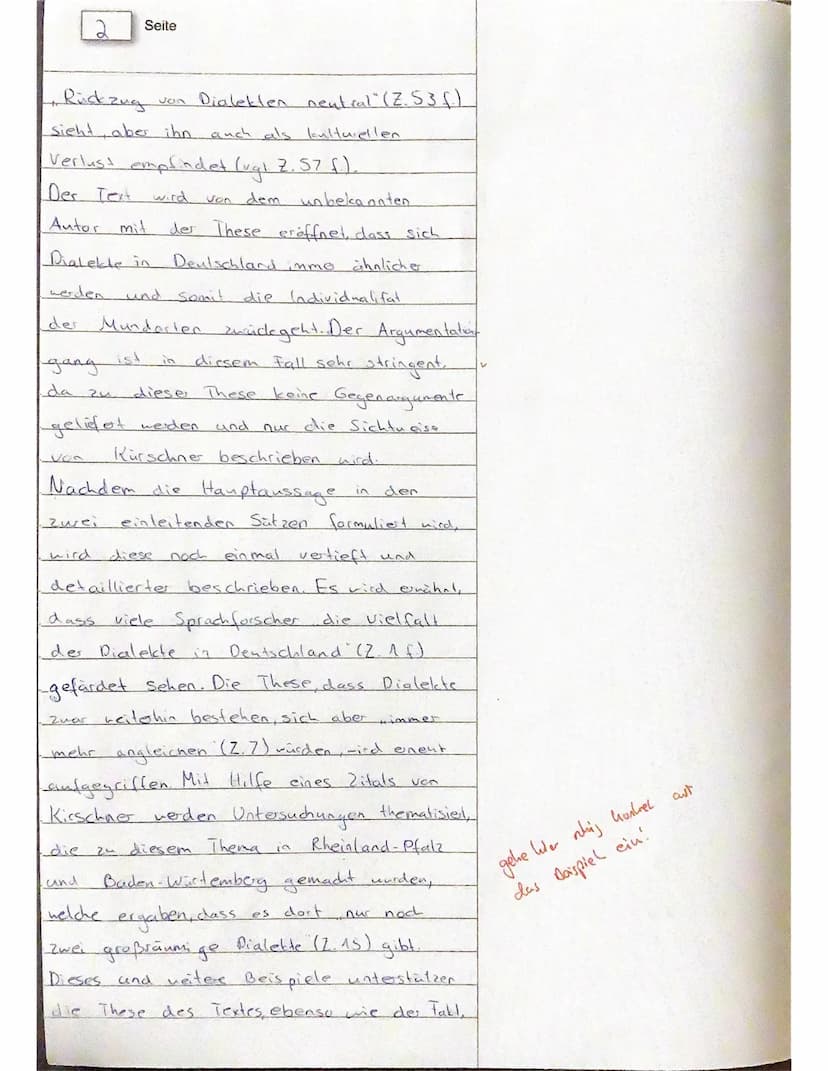 2 Seite
„Rückzug von Dialekten neutral“ (Z. 53 f.)
sieht, aber ihn auch als kulturellen
Verlust empfindet (vgl. Z. 57 f.).
Der Text wird von dem unbekannten
Autor mit der These eröffnet, dass sich
Dialekte in Deutschland imme ähnlicher
werden und somit die Individualität
der Mundarten zurückgeht. Der Argumentation
gang ist in diesem Fall sehr stringent,
da zu dieser These keine Gegenargumente
geliefet werden und nur die Sichtweise
von Kürschner beschrieben wird.
Nachdem die Hauptaussage in den
zwei einleitenden Sätzen formuliert wird,
wird diese noch einmal vertieft und
detaillierter beschrieben. Es wird erwähnt,
dass viele Sprachforscher „die Vielfalt
der Dialekte in Deutschland“ (Z. 1 f.)
gefärdet sehen. Die These, dass Dialekte
zwar weiterhin bestehen, sich aber „immer
mehr angleichen“ (Z. 7) würden, wird erneut
aufgegriffen. Mit Hilfe eines Zitats von
Kirschner werden Untersuchungen thematisiert,
die zu diesem Thema in Rheinland-Pfalz
und Baden-Würtemberg gemacht wurden,
welche ergaben, dass es dort „nur noch
zwei großräumige Dialekte“ (Z. 15) gibt.
Dieses und weitere Beispiele unterstützen
die These des Textes, ebenso wie der Fakt,
gehe hier ruhig konkret auf
das Beispiel ein!